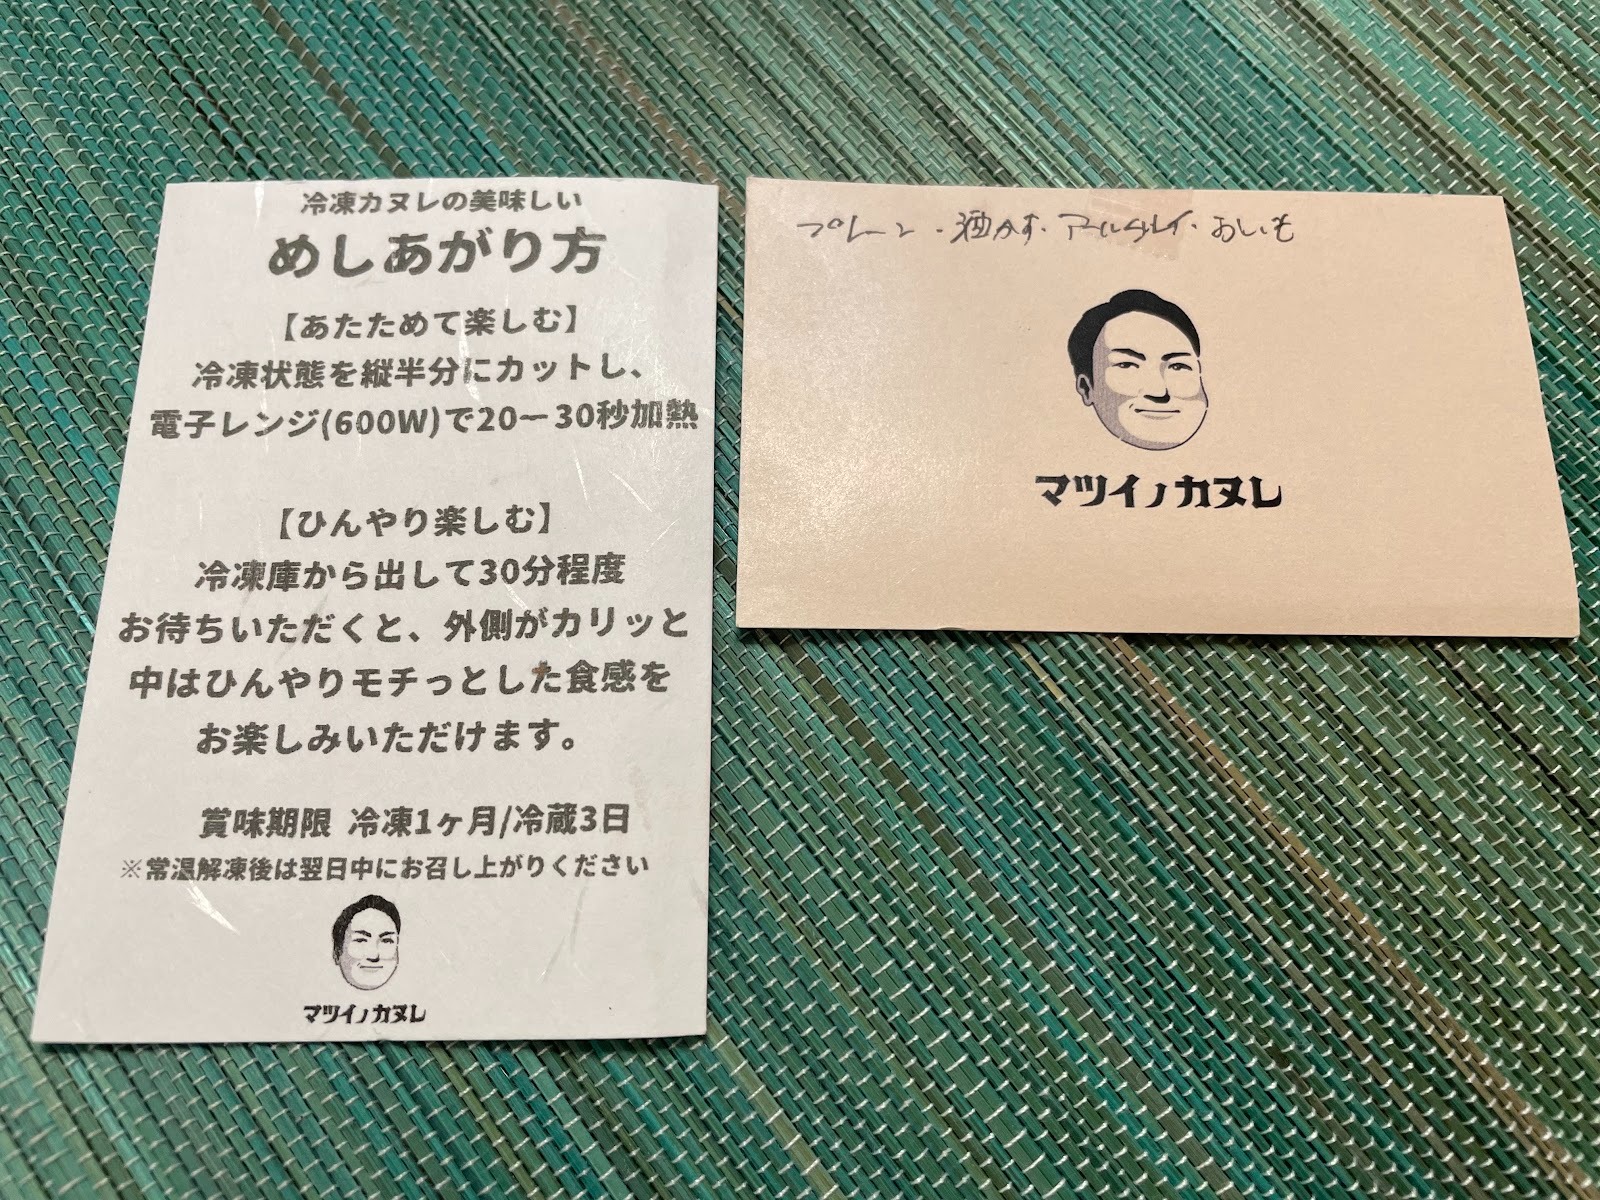 冷凍カヌレの美味しい
めしあがり方
【あたためて楽しむ】
冷凍状態を縦半分にカットし、
電子レンジ(600W)で20ー30秒加熱
【ひんやり楽しむ】
冷凍庫から出して30分程度
お待ちいただくと、外側がカリッと
中はひんやりモチっとした食感を
お楽しみいただけます。
賞味期限 冷凍1ヶ月/冷蔵3日
※常温解凍後は翌日中にお召し上がりください
マツイノカヌレ
プレーン・酒かす・アールグレイ・おいも
マツイノカヌレ